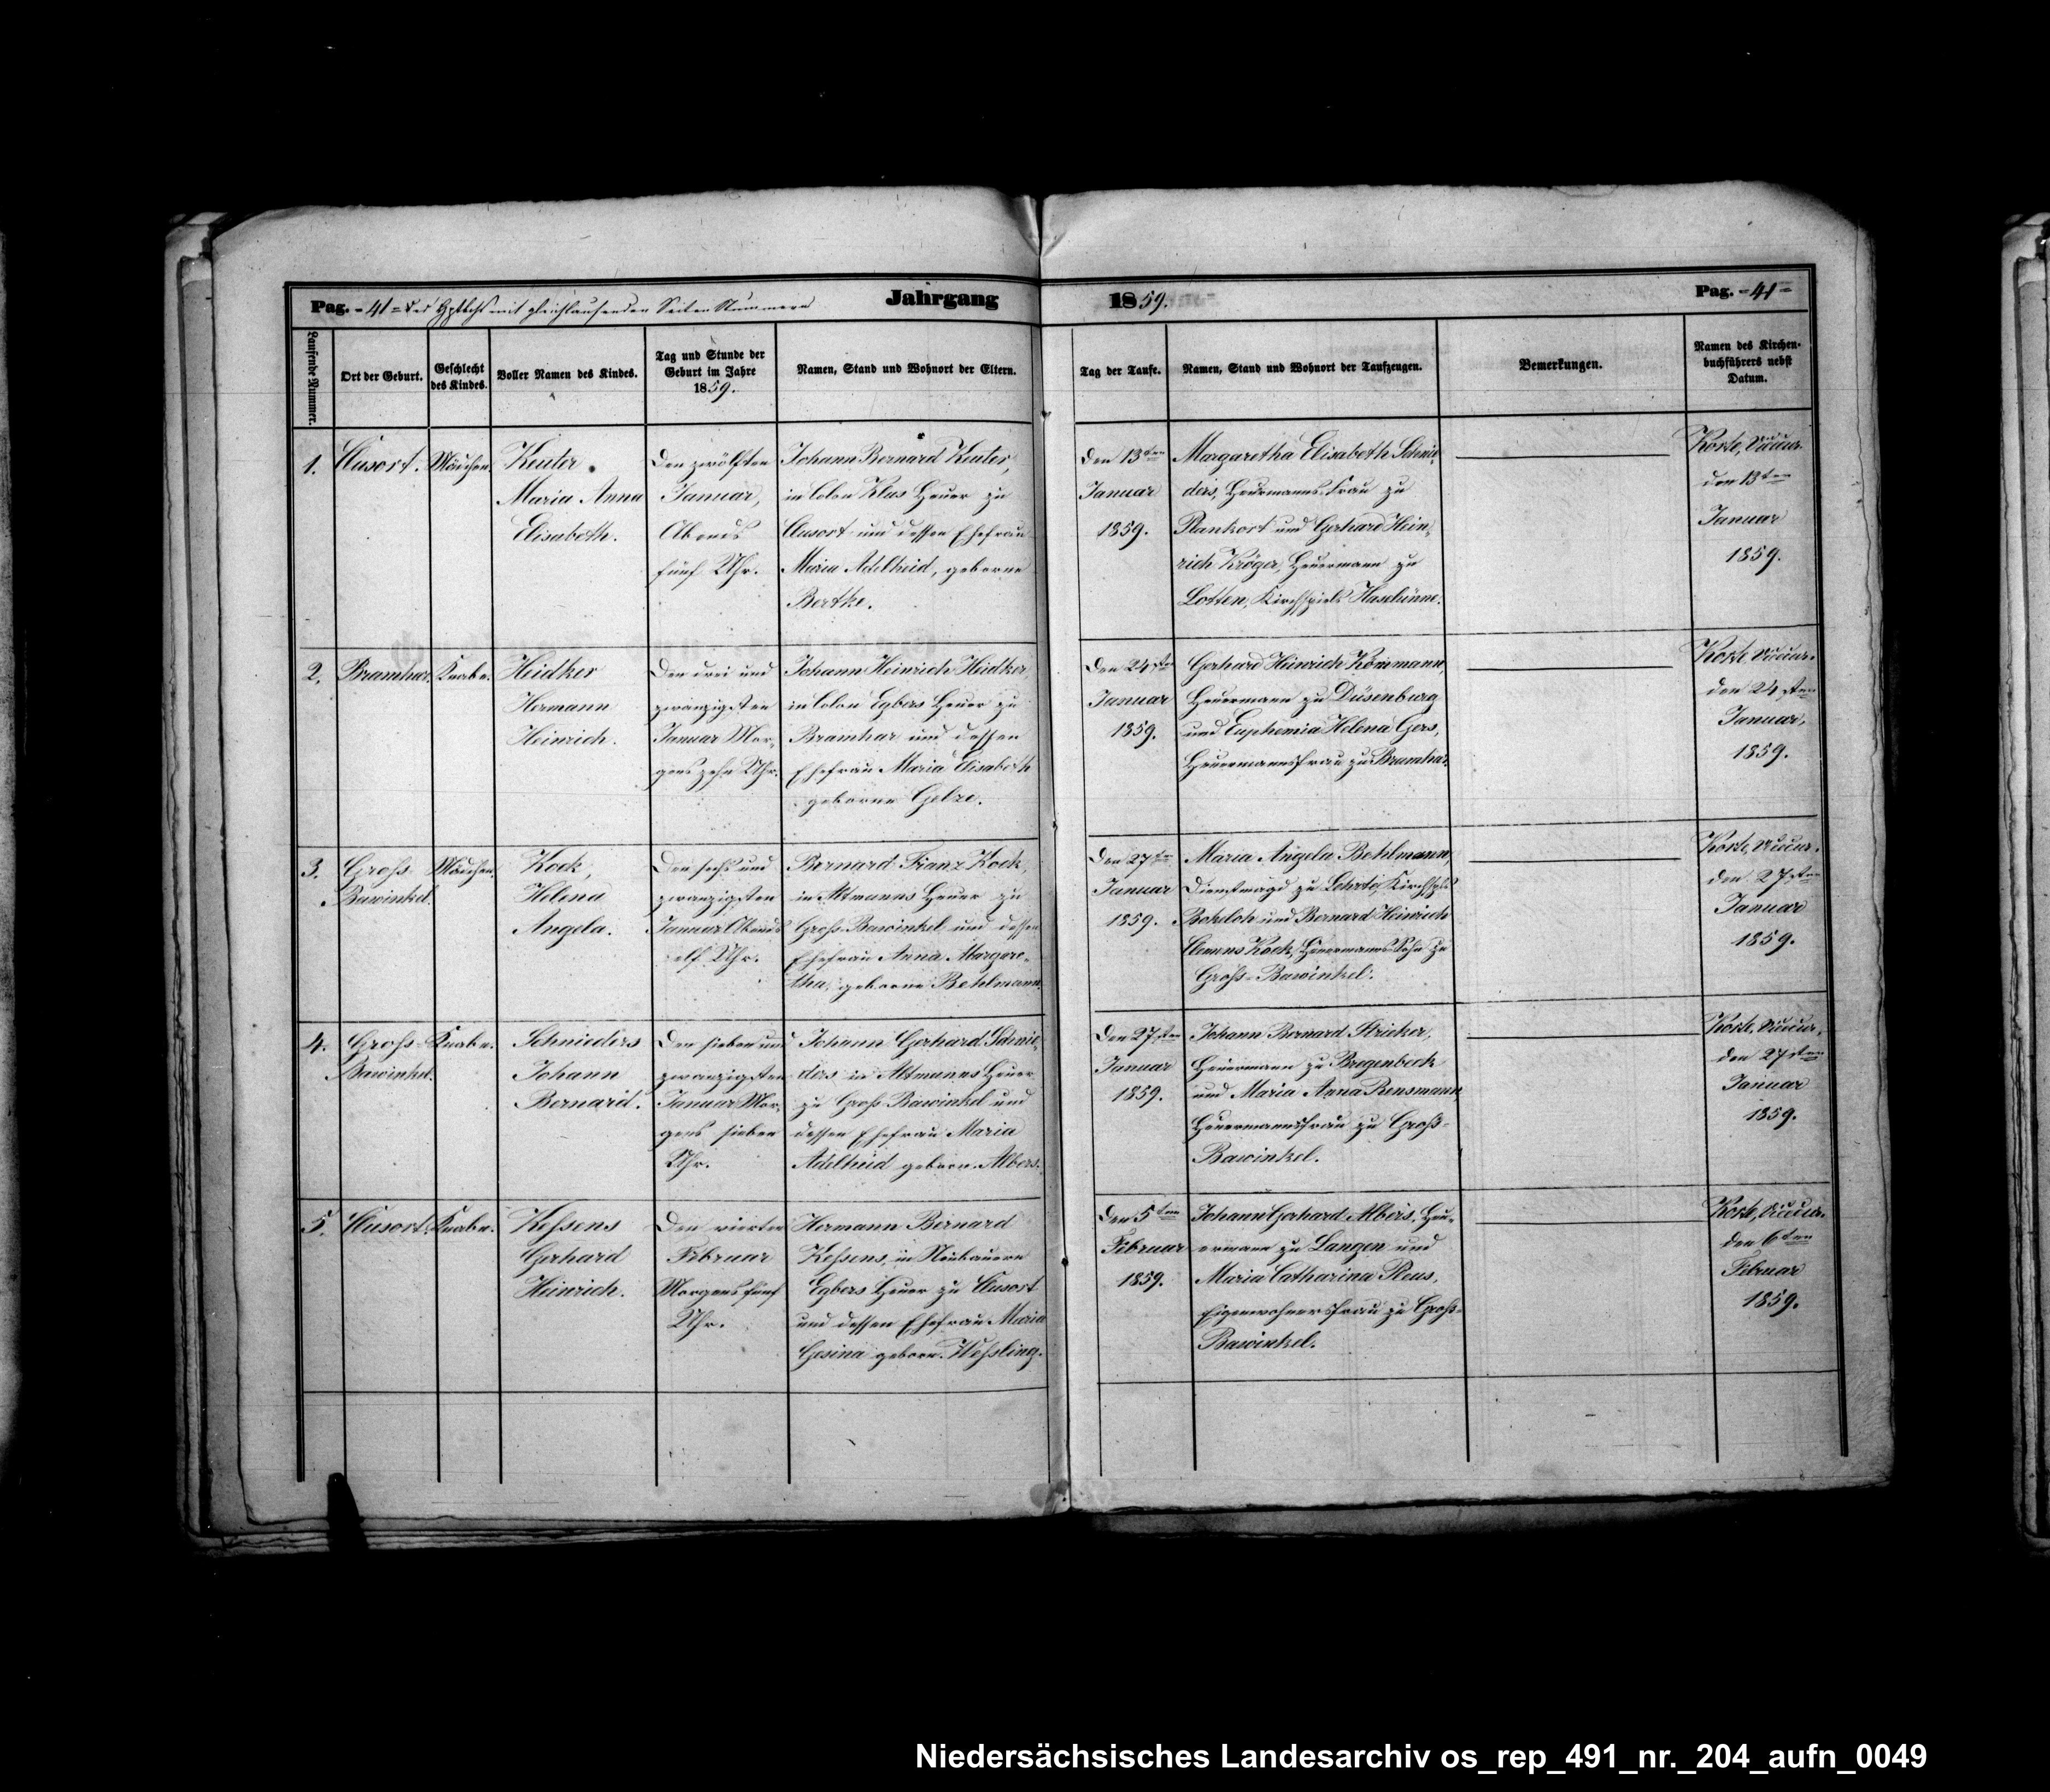 Pag. - 41 = des Hptbchs mit gleichlaufenden Seiten Nummern
Jahrgang
1859.
Pag. = 41 =
Laufende Nummer.
Ort der Geburt.
Geschlecht
des Kindes.
Voller Namen des Kindes.
Tag und Stunde der
Geburt im Jahre
1859.
Namen, Stand und Wohnort der Eltern.
Tag der Taufe.
Namen, Stand und Wohnort der Taufzeugen.
Bemerkungen.
Namen des Kirchen-
buchführers nebst
Datum.
1.
Clusort.
Mädchen.
Keuter
Maria Anna
Elisabeth.
Den zwölften
Januar,
Abends
fünf Uhr.
Johann Bernard Keuter,
in Colon Klus Heuer zu
Clusort und dessen Ehefrau
Maria Adelheid, geborne
Bertke.
Den 13ten
Januar
1859.
Margaretha Elisabeth Schnie-
ders, Heurmanns Frau zu
Plankort und Gerhard Hein-
rich Kröger, Heuermann zu
Lotten, Kirchspiels Haselünne.
Korte, Vicecur.
den 13ten
Januar
1859.
2.
Bramhar.
Knabe.
Heidker
Hermann
Heinrich.
Den drei und
zwanzigsten
Januar Mor-
gens zehn Uhr.
Johann Heinrich Heidker,
in Colon Egbers Heuer zu
Bramhar und dessen
Ehefrau Maria Elisabeth
geborne Gelze.
Den 24sten
Januar
1859.
Gerhard Heinrich Kömmann,
Heuermann zu Düsenburg
und Euphemia Helena Gers,
Heuermannsfrau zu Bramhar.
Korte, Vicecur.
den 24sten
Januar,
1859.
3.
Gross
Bawinkel.
Mädchen.
Kock,
Helena
Angela.
Den sechs und
zwanzigsten
Januar Abends
elf Uhr.
Bernard Franz Kock,
in Altmanns Heuer zu
Gross-Bawinkel und dessen
Ehefrau Anna Margare-
tha, geborne Behlmann.
Den 27sten
Januar
1859.
Maria Angela Behlmann,
Dienstmagd zu Lehrte, Kirchspls
Bokeloh und Bernard Heinrich
Clemens Kock, Heuermanns Sohn zu
Gross-Bawinkel.
Korte, Vicecur.
den 27sten
Januar
1859.
4.
Gross-
Bawinkel.
Knabe.
Schnieders
Johann
Bernard.
Den sieben und
zwanzigsten
Januar Mor-
gens sieben
Uhr.
Johann Gerhard Schnie-
ders in Altmanns Heuer
zu Gross Bawinkel und
dessen Ehefrau Maria
Adelheid geborn. Albers.
Den 27sten
Januar
1859.
Johann Bernard Stricker,
Heuermann zu Bregenbeck
und Maria Anna Rensmann
Heuermannsfrau zu Gross-
Bawinkel.
Korte, Vicecur.
den 27sten
Januar
1859.
5.
Clusort.
Knabe.
Kessens
Gerhard
Heinrich.
Den vierten
Februar
Morgens fünf
Uhr.
Hermann Bernard
Kessens, in Neubauern
Egbers Heuer zu Clusort
und dessen Ehefrau Maria
Gesina geborn. Wessling.
Den 5ten
Februar
1859.
Johann Gerhard Albers, Heu-
ermann zu Langen und
Maria Catharina Reus,
Eigenwohnersfrau zu Gross-
Bawinkel.
Korte, Vicecur.
den 6ten
Februar
1859.
Niedersächsisches Landesarchiv os_rep_491_nr._204_aufn_0049